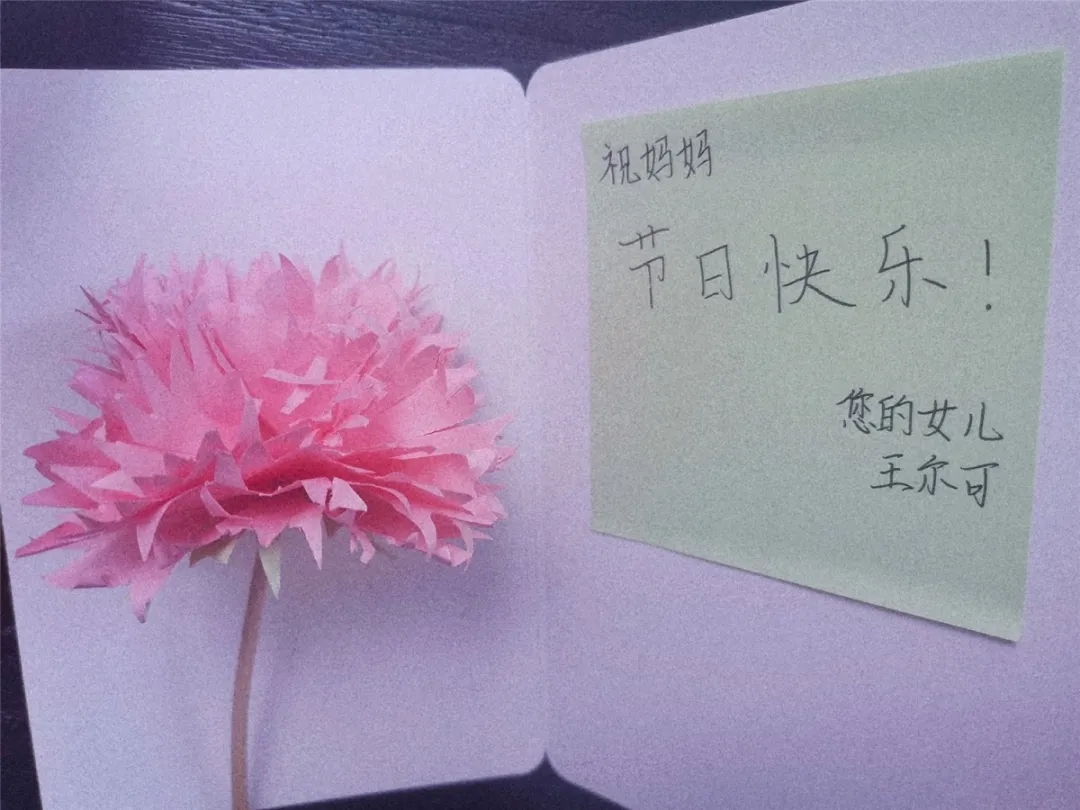 祝妈妈
节日快乐！
您的女儿
王尔可